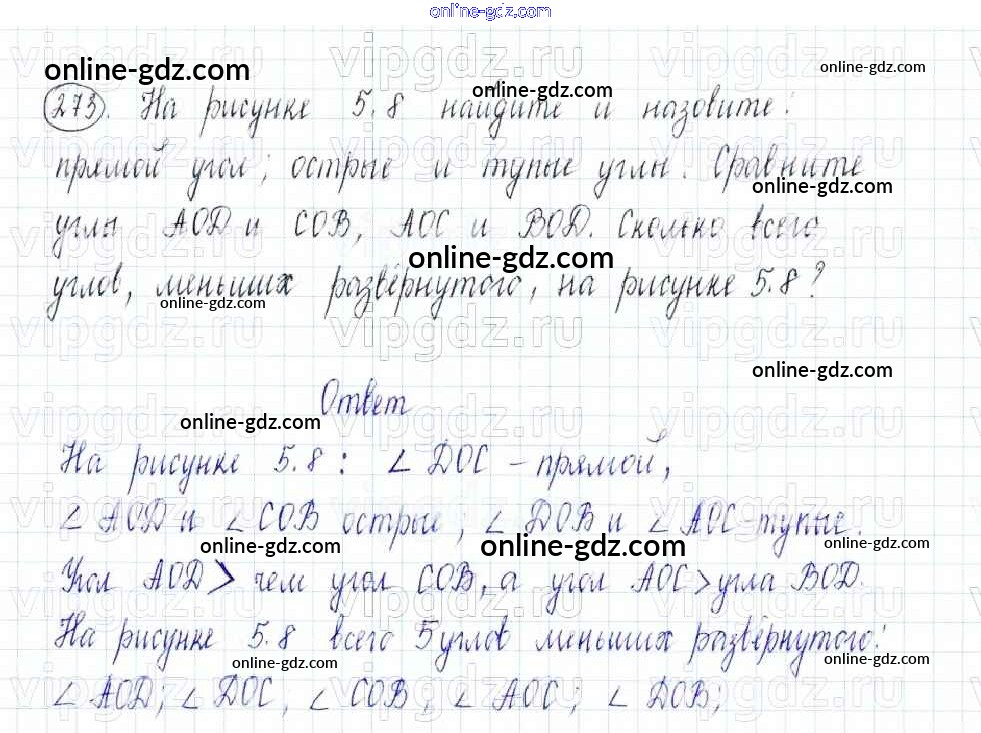 online-gdz.com
online-gdz.com
online-gdz.com
online-gdz.com
273. На рисунке 5.8 найдите и назовите:
прямой угол; острые и тупые углы. Сравните
online-gdz.com
углы AOD и COB, AOC и BOD. Сколько всего
online-gdz.com
углов, меньших развёрнутого, на рисунке 5.8?
online-gdz.com
vipgdz.ru vipgdz.ru vipgdz.ru
online-gdz.com
Ответ
online-gdz.com
На рисунке 5.8: ∠ DOC – прямой,
∠ AOD и ∠ COB острые; ∠ DOB и ∠ AOC – тупые.
online-gdz.com online-gdz.com online-gdz.com
Угол AOD > чем угол COB, а угол AOC > угла BOD.
На рисунке 5.8 всего 5 углов меньших развёрнутого:
online-gdz.com online-gdz.com
∠ AOD; ∠ DOC; ∠ COB; ∠ AOC; ∠ DOB;